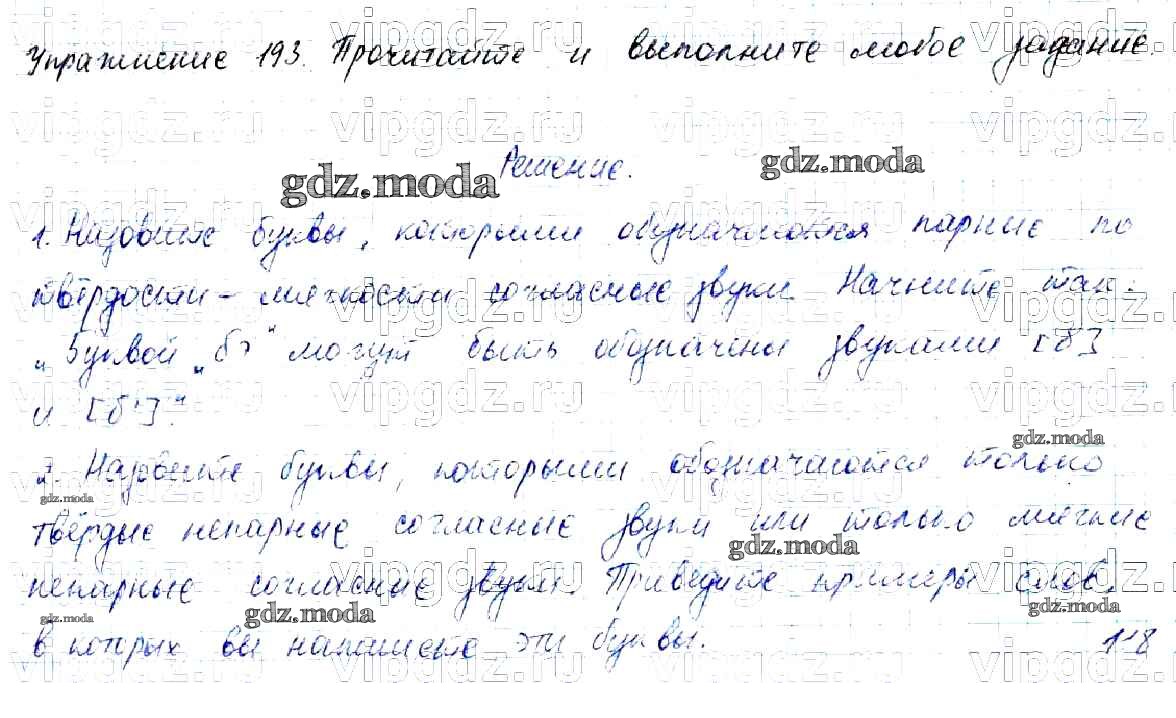 Упражнение 193. Прочитайте и выполните любое задание.
Решение.
1. Назовите буквы, которыми обозначаются парные по
твёрдости – мягкости согласные звуки. Начните так:
„Буквой „бэ“ могут быть обозначены звуками [б]
и [б']“.
2. Назовите буквы, которыми обозначаются только
твёрдые непарные согласные звуки или только мягкие
непарные согласные звуки. Приведите примеры слов,
в которых вы напишете эти буквы.
118
vipgdz.ru
gdz.moda